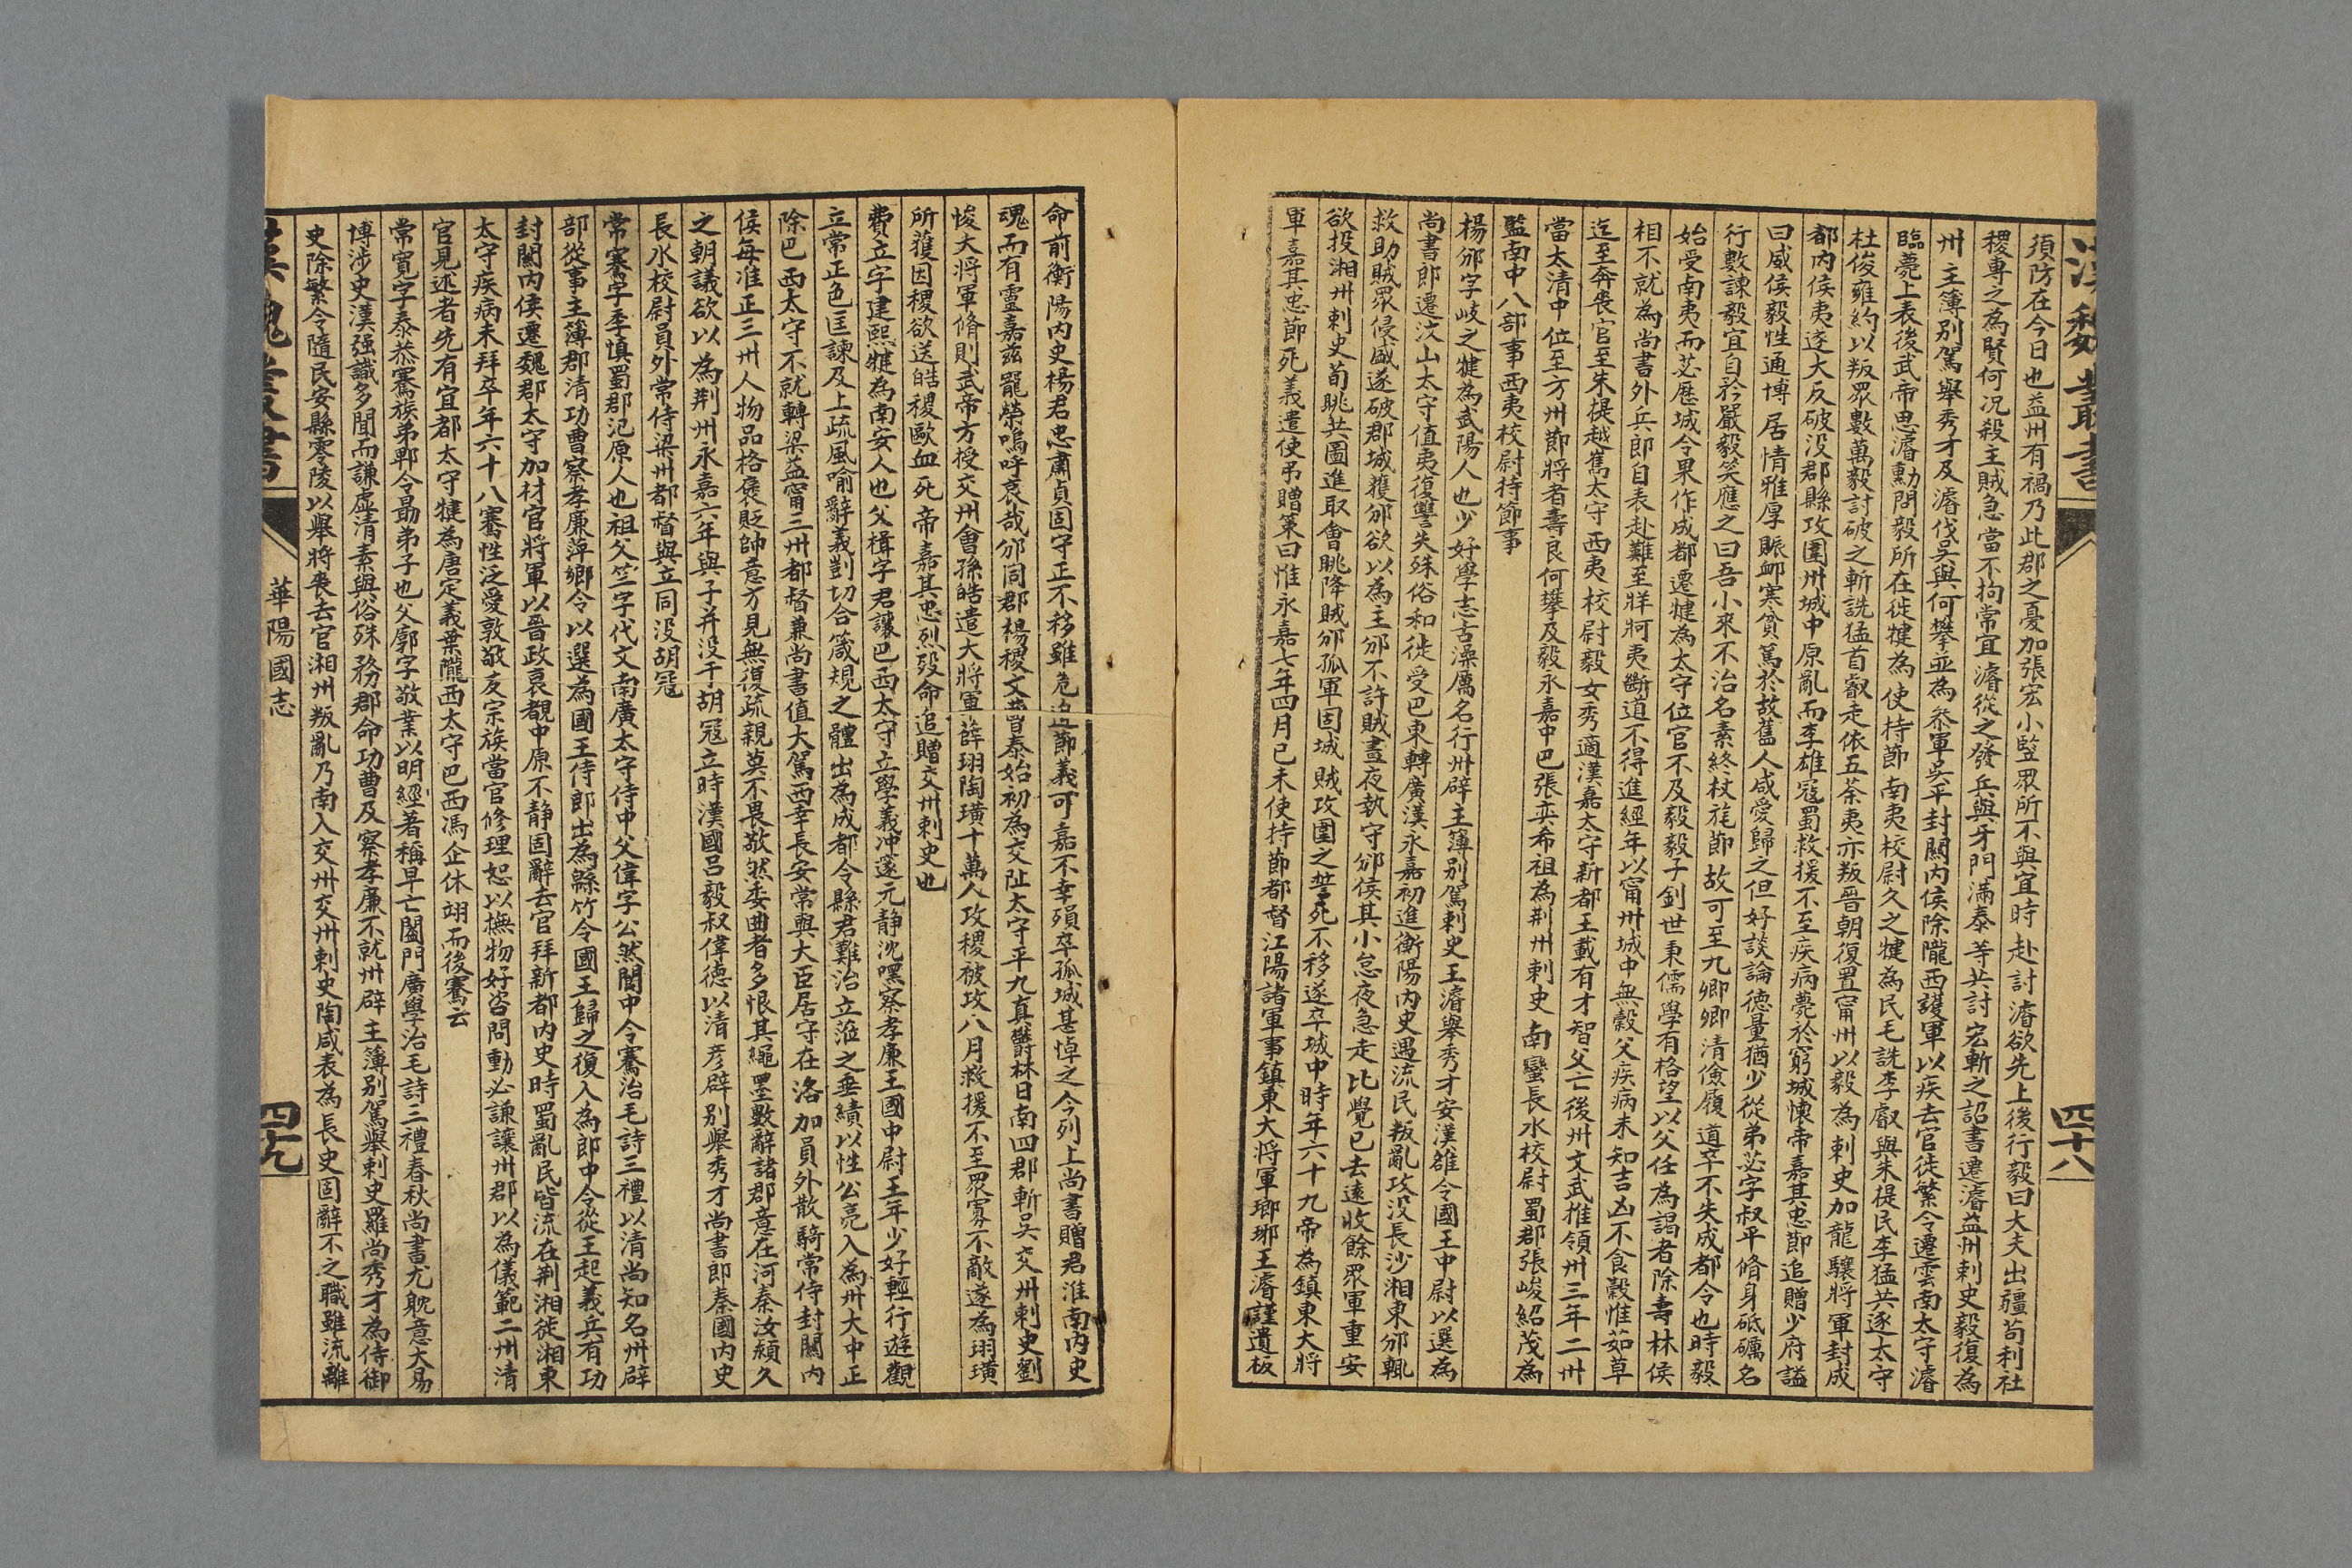 漢魏叢書
四十八
須防在今日也益州有禍乃此郡之憂加張宏小豎眾所不與宜時赴討濬欲先上後行毅曰大夫出疆苟利社
稷專之為賢何況殺主賊急當不拘常宜濬從之發兵與牙門滿泰等共討宏斬之詔書遷濬益州刺史毅復為
州主簿別駕舉秀才及濬伐吳與何攀並為叅軍吳平封關內侯除隴西護軍以疾去官徙繁令遷雲南太守濬
臨薨上表後武帝思濬勳問毅所在徙犍為使持節南夷校尉久之犍為民毛詵李叡與朱提民李猛共逐太守
杜俊雍約以叛眾數萬毅討破之斬詵猛首叡走依五荼夷亦叛晉朝復置甯州以毅為刺史加龍驤將軍封成
都內侯夷遂大反破沒郡縣攻圍州城中原亂而李雄寇蜀救援不至疾病薨於窮城懷帝嘉其忠節追贈少府諡
曰威侯毅性通博居情雅厚賑卹寒貧篤於故舊人咸愛歸之但好談論德量猶少從弟苾字叔平脩身砥礪名
行數諫毅宜自矜嚴毅笑應之曰吾小來不治名素終杖旄節故可至九卿卿清儉履道卒不失成都令也時毅
始受南夷而苾歷城令果作成都遷犍為太守位官不及毅毅子釗世秉儒學有格望以父任為謁者除壽林侯
相不就為尚書外兵郎自表赴難至牂牁夷斷道不得進經年以甯州城中無糓父疾病未知吉凶不食糓惟茹草
迄至奔喪官至朱提越嶲太守西夷校尉毅女秀適漢嘉太守新都王載有才智父亡後州文武推領州三年二卅
當太清中位至方州節將者壽良何攀及毅永嘉中巴張奕希祖為荆州刺史南蠻長水校尉蜀郡張峻紹茂為
監南中八部事西夷校尉持節事
楊邠字岐之犍為武陽人也少好學志古澡厲名行州辟主簿別駕刺史王濬舉秀才安漢雒令國王中尉以選為
尚書郎遷汶山太守值夷復讐失殊俗和徙受巴東轉廣漢永嘉初進衡陽內史遇流民叛亂攻沒長沙湘東邠輒
救助賊眾侵盛遂破郡城獲邠欲以為主邠不許賊晝夜執守邠侯其小怠夜急走比覺已去遠收餘眾軍重安
欲投湘州刺史荀眺共圖進取會眺降賊邠孤軍固城賊攻圍之誓死不移遂卒城中時年六十九帝為鎮東大將
軍嘉其忠節死義遣使弔贈策曰惟永嘉七年四月己未使持節都督江陽諸軍事鎮東大將軍瑯琊王濬謹遺板
命前衡陽內史楊君忠肅貞固守正不移雖危迫節義可嘉不幸殞卒孤城甚悼之今列上尚書贈君淮南內史
魂而有靈嘉兹寵榮嗚呼哀哉邠同郡楊稷文曹泰始初為交阯太守平九真鬱林日南四郡斬吳交州刺史劉
悛大將軍脩則武帝方授交州會孫皓遣大將軍薛珝陶璜十萬人攻稷被攻八月救援不至眾寡不敵遂為珝璜
所獲因稷欲送皓稷歐血死帝嘉其忠烈殁命追贈交州刺史也
費立字建熙犍為南安人也父楫字君讓巴西太守立學義冲邃元静沈嘿察孝廉王國中尉王年少好輕行遊觀
立常正色匡諫及上疏風喻辭義剴切合箴規之體出為成都令縣君難治立涖之垂績以性公亮入為州大中正
除巴西太守不就轉梁益甯三州都督兼尚書值大駕西幸長安常與大臣居守在洛加員外散騎常侍封關內
侯每准正三州人物品格褒貶帥意方見無復疏親莫不畏敬然委曲者多恨其繩墨數辭諸郡意在河秦汝潁久
之朝議欲以為荆州永嘉六年與子并沒于胡寇立時漢國呂毅叔偉德以清彥辟別舉秀才尚書郎秦國內史
長水校尉員外常侍梁州都督與立同沒胡寇
常騫字季慎蜀郡汜原人也祖父竺字代文南廣太守侍中父偉字公然閬中令騫治毛詩三禮以清尚知名州辟
部從事主簿郡清功曹察孝廉萍鄉令以選為國王侍郎出為綿竹令國王歸之復入為郎中令從王起義兵有功
封關內侯遷魏郡太守加材官將軍以晉政衰覩中原不静固辭去官拜新都內史時蜀亂民皆流在荆湘徙湘東
太守疾病未拜卒年六十八騫性泛愛敦敬友宗族當官修理恕以撫物好咨問動必謙讓州郡以為儀範二州清
官見述者先有宜都太守犍為唐定義葉隴西太守巴西馮企休翊而後騫云
常寬字泰恭騫族弟郫令勗弟子也父廓字敬業以明經著稱早亡闔門廣學治毛詩三禮春秋尚書尤躭意大易
博涉史漢强識多聞而謙虛清素與俗殊務郡命功曹及察孝廉不就州辟主簿別駕舉刺史羅尚秀才為侍御
史除繁令隨民安縣零陵以舉將喪去官湘州叛亂乃南入交州交州刺史陶咸表為長史固辭不之職雖流離
漢魏叢書
華陽國志
四十九